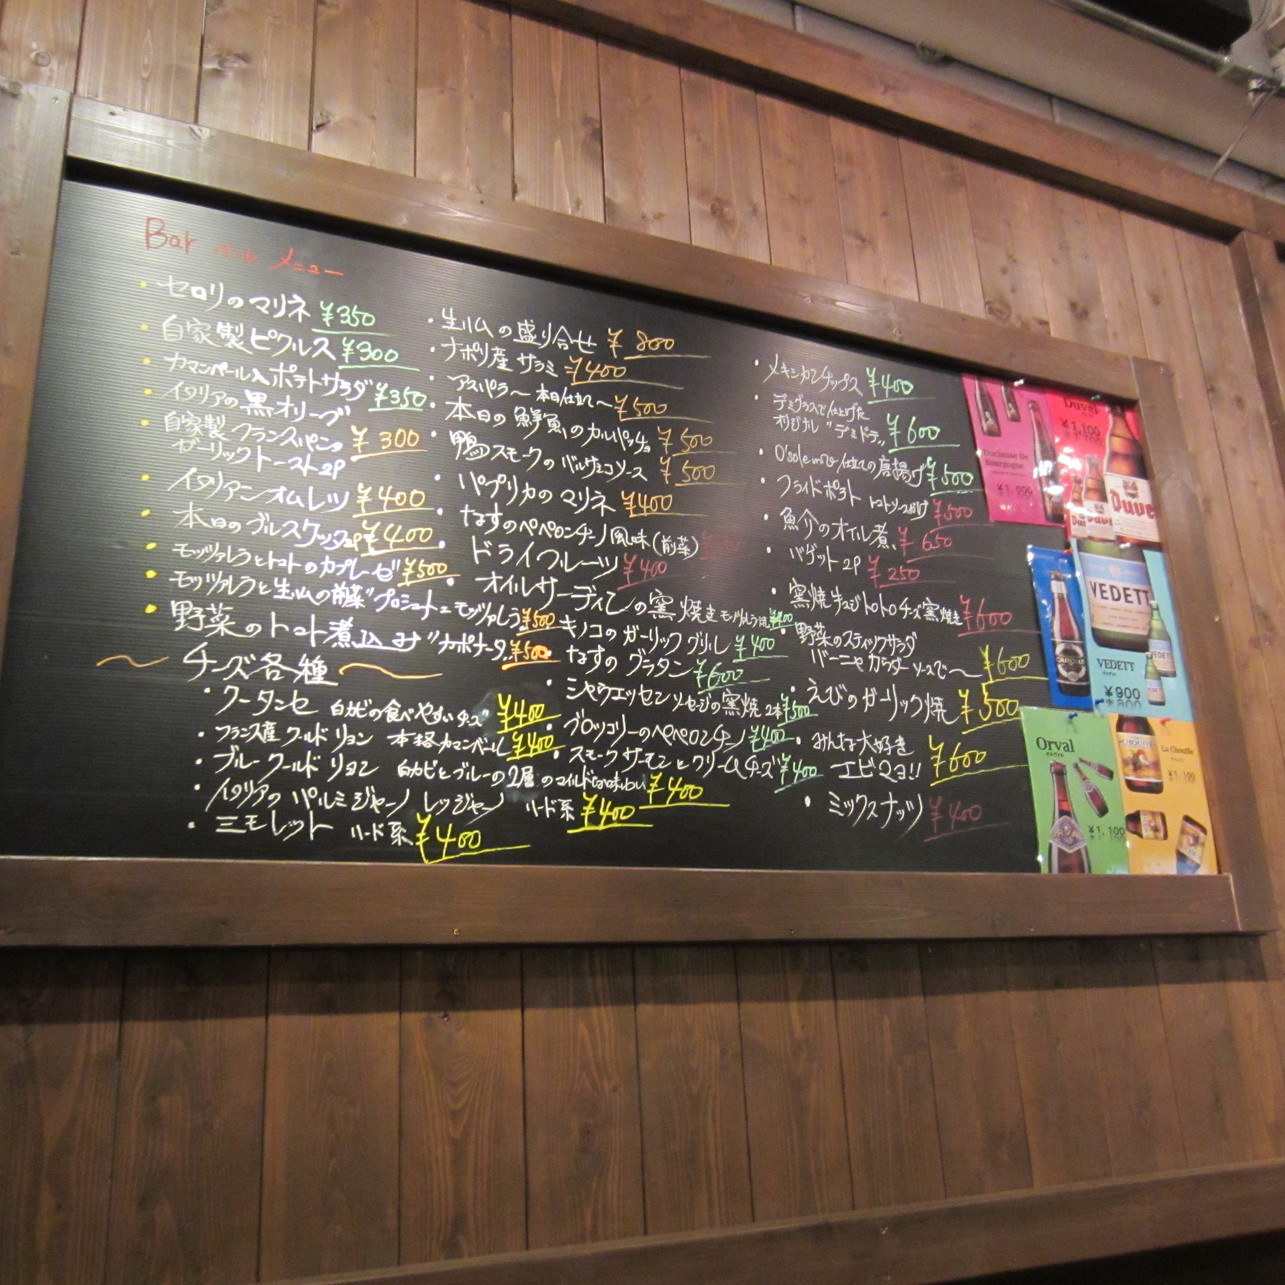 Bar メニュー
セロリのマリネ ¥350
自家製ピクルス ¥300
カマンベール入ポテトサラダ ¥350
イタリアの黒オリーブ
自家製フランスパンの
ガーリックトースト2P ¥300
イタリアンオムレツ ¥400
本日のブルスケッタ2P ¥400
モッツァレラとトマトのカプレーゼ ¥500
モッツァレラと生ハムの前菜"プロシュート エ モッツァレラ" ¥500
野菜のトマト煮込み"カポナータ" ¥500
チーズ各種
クータンセ 白カビの食べやすいチーズ ¥400
フランス産クールドリヨン 本格カマンベール ¥400
ブルークールドリヨン 白カビとブルーの2層のマイルドな味わい ¥400
イタリアのパルミジャーノレッジャーノ ハード系 ¥400
ミモレット ハード系 ¥400
生ハムの盛り合せ ¥800
ナポリ産サラミ ¥400
アスパラ〜本日仕立て〜 ¥500
本日の鮮魚のカルパッチョ ¥500
鴨スモークのバルサミコソース ¥500
パプリカのマリネ ¥400
なすのペペロンチーノ風味(前菜)
ドライフルーツ ¥400
オイルサーディンの窯焼き モッツァレラ焼 ¥400
キノコのガーリックグリル ¥400
なすのグラタン ¥600
シャウエッセンソーセージの窯焼2本 ¥500
ブロッコリーのペペロンチーノ ¥400
スモークサーモンとクリームチーズ ¥400
メキシカンチップス ¥400
デミグラスで仕上げた
オリジナル "デミドラ" ¥600
O'sole mio仕立ての唐揚げ ¥500
フライドポテト ¥500
魚介のオイル煮 ¥650
バゲット2P ¥250
窯焼 チーズ窯焼き ¥600
野菜のスティックサラダ
バーニャカウダーソースで〜 ¥600
えびのガーリック焼 ¥500
みんな大好き
エビマヨ!! ¥600
ミックスナッツ ¥400
Duchesse de
Bourgogne
Duvel
¥1,100
Duvel
VEDETT
VEDETT
¥900
Orval
¥1,100
La Chouffe
¥1,100